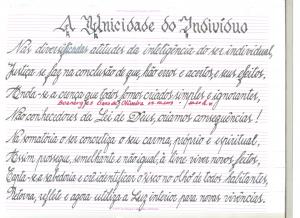 A Unicidade do Indivíduo
Nas diversificadas atitudes da inteligência do ser individual,
Justiça se faz na conclusão de que, hão erros e acertos, e seus efeitos.
Anota-se a crença que todos fomos criados, simples e ignorantes,
Boanerges de Oliveira
Não conhecedores da Lei de Deus, criamos consequências!
Na somatória o ser concretiza o seu carma, próprio e espiritual,
Assim prossegue, semelhante e não igual, à livre viver novos feitos,
Capta-se a sabedoria e o identificar o risco no olho de todos habitantes,
Retorna, reflete e agora utiliza a Luz interior para novas vivências.